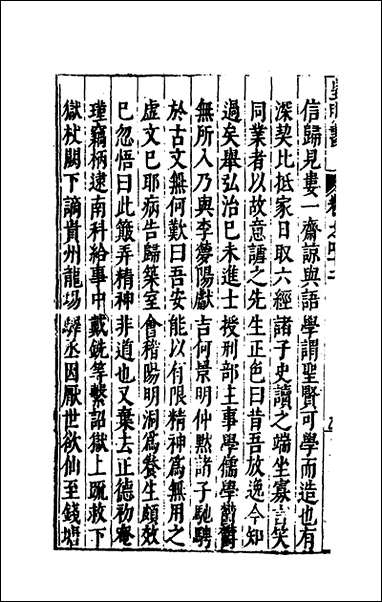 皇明書
信歸見婁一齋諒與語學謂聖賢可學而造也有
深契比抵家日取六經諸子史讀之端坐寡言笑
同業者以故意謔之先生正色曰昔吾放逸今知
過矣舉弘治己未進士授刑部主事學儒學欝欝
無所入乃與李夢陽獻吉何景明仲黙諸子馳騁
於古文無何歎曰吾安能以有限精神爲無用之
虛文已耶病告歸築室會稽陽明洞爲養生頗效
已忽悟曰此簸弄精神非道也又棄去正德初奄
瑾竊柄逮南科給事中戴銑等繫詔獄上疏救下
獄杖闕下謫貴州龍場驛丞因厭世欲仙至錢塘